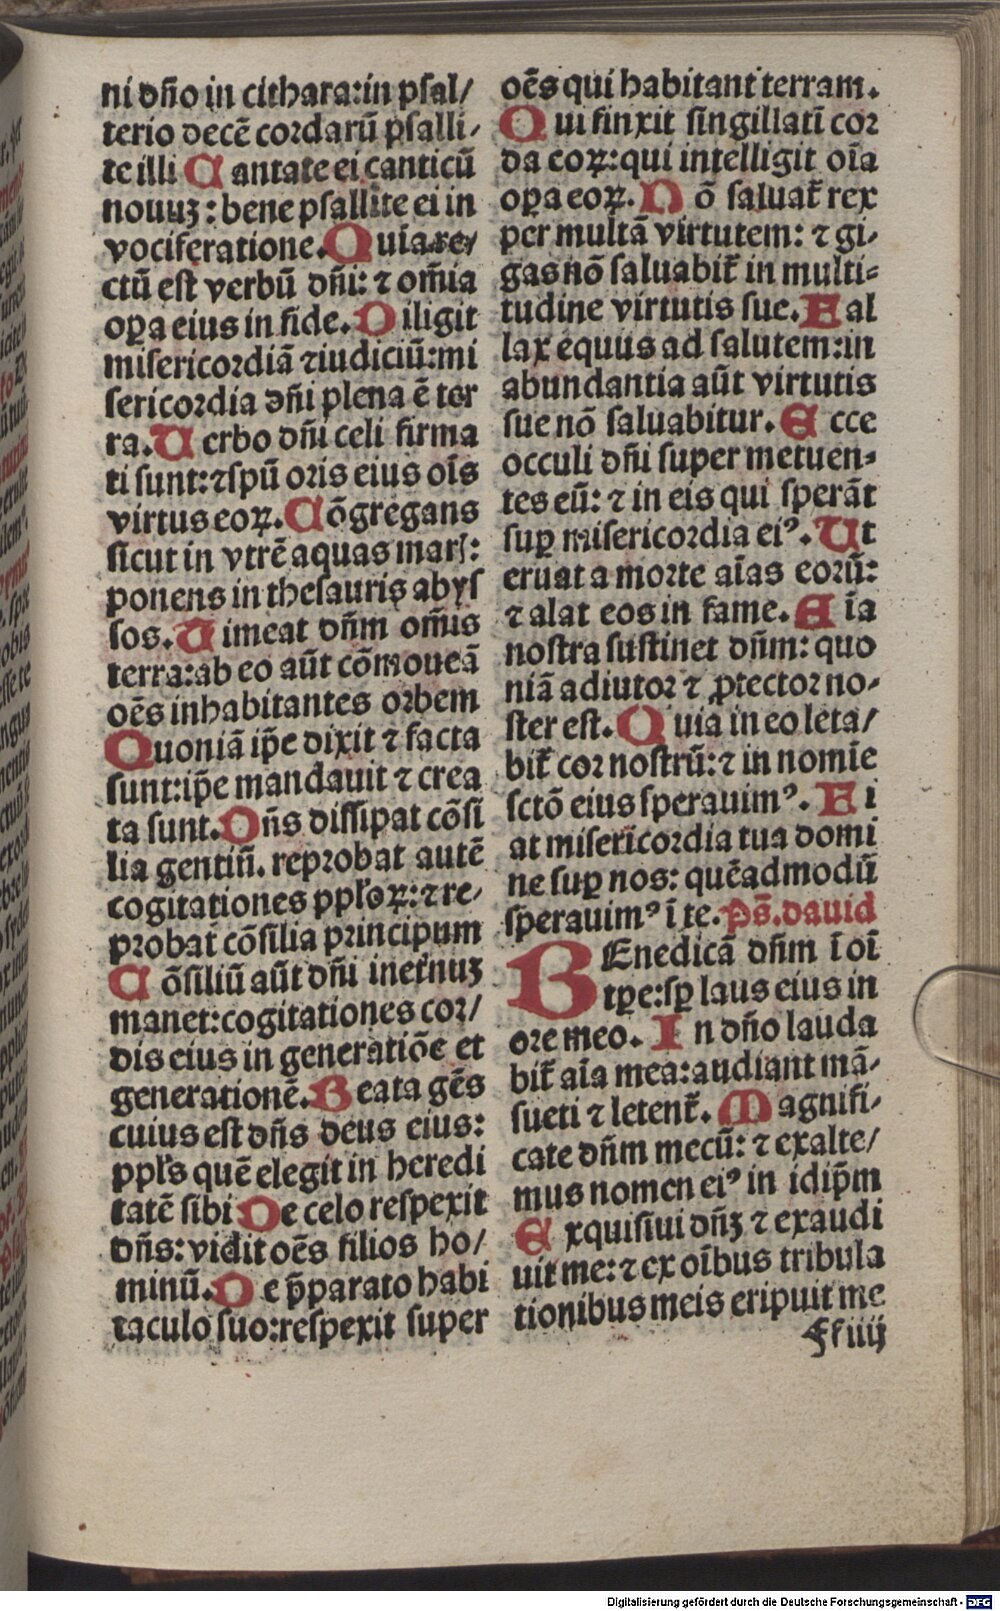 ni dño in cithara:in psal/
terio decē cordarū psalli/
te illi Cantate ei canticū
nouuʒ: bene psallite ei in
vociferatione.Quia re/
ctū est verbū dñi: ⁊ om̄ia
oꝑa eius in fide.Diligit
misericordiā ⁊iudiciū:mi
sericordia dñi plena ē ter
ra.Verbo dñi celi firma
ti sunt:⁊spū oris eius oīs
virtus eoꝝ.Cōgregans
sicut in vtrē aquas marꝭ:
ponens in thesauris abys
sos.Timeat dñm om̄is
terra:ab eo aūt cōmoueā
oēs inhabitantes orbem
Quoniā ip̄e dixit ⁊ facta
sunt:ip̄e mandauit ⁊ crea
ta sunt.Dñs dissipat cōsi
lia gentiū. reprobat autē
cogitationes ppl̄oꝝ:⁊re/
probat cōsilia principum
Cōsiliū aūt dñi inet̄nuʒ
manet:cogitationes cor/
dis eius in generatiōe et
generationē.Beata gēs
cuius est dñs deus eius:
ppl̄s quē elegit in heredi
tatē sibi De celo respexit
dñs:vidit oēs filios ho/
minū.De p̄parato habi
taculo suo:respexit super
oēs qui habitant terram.
Qui finxit singillatī cor
da eoꝝ:qui intelligit oīa
oꝑa eoꝝ.Nō saluat̄ rex
per multā virtutem: ⁊ gi/
gas nō saluabit̄ in multi=
tudine virtutis sue.Fal
lax equus ad salutem:in
abundantia aūt virtutis
sue nō saluabitur.Ecce
occuli dñi super metuen=
tes eū: ⁊ in eis qui sperāt
suꝑ misericordia eiꝰ.Vt
eruat a morte aīas eorū:
⁊ alat eos in fame.Aīa
nostra sustinet dñm: quo
niā adiutor ⁊ ꝓtector no/
ster est.Quia in eo leta/
bit̄ cor nostrū:⁊ in nomīe
sctō eius sperauimꝰ.Fi
at misericordia tua domi
ne suꝑ nos: quēadmodū
sperauimꝰ ī te.Ps̄.dauid
BEnedicā dñm ī oī
tꝑe:sꝑ laus eius in
ore meo.In dño lauda
bit̄ aīa mea:audiant mā/
sueti ⁊ letent̄.Magnifi/
cate dñm mecū: ⁊ exalte/
mus nomen eiꝰ in idip̄m
Exquisiui dñʒ ⁊ exaudi
uit me:⁊ ex oībus tribula
tionibus meis eripuit me
Ffiiij
Digitalisierung gefördert durch die Deutsche Forschungsgemeinschaft - DFG